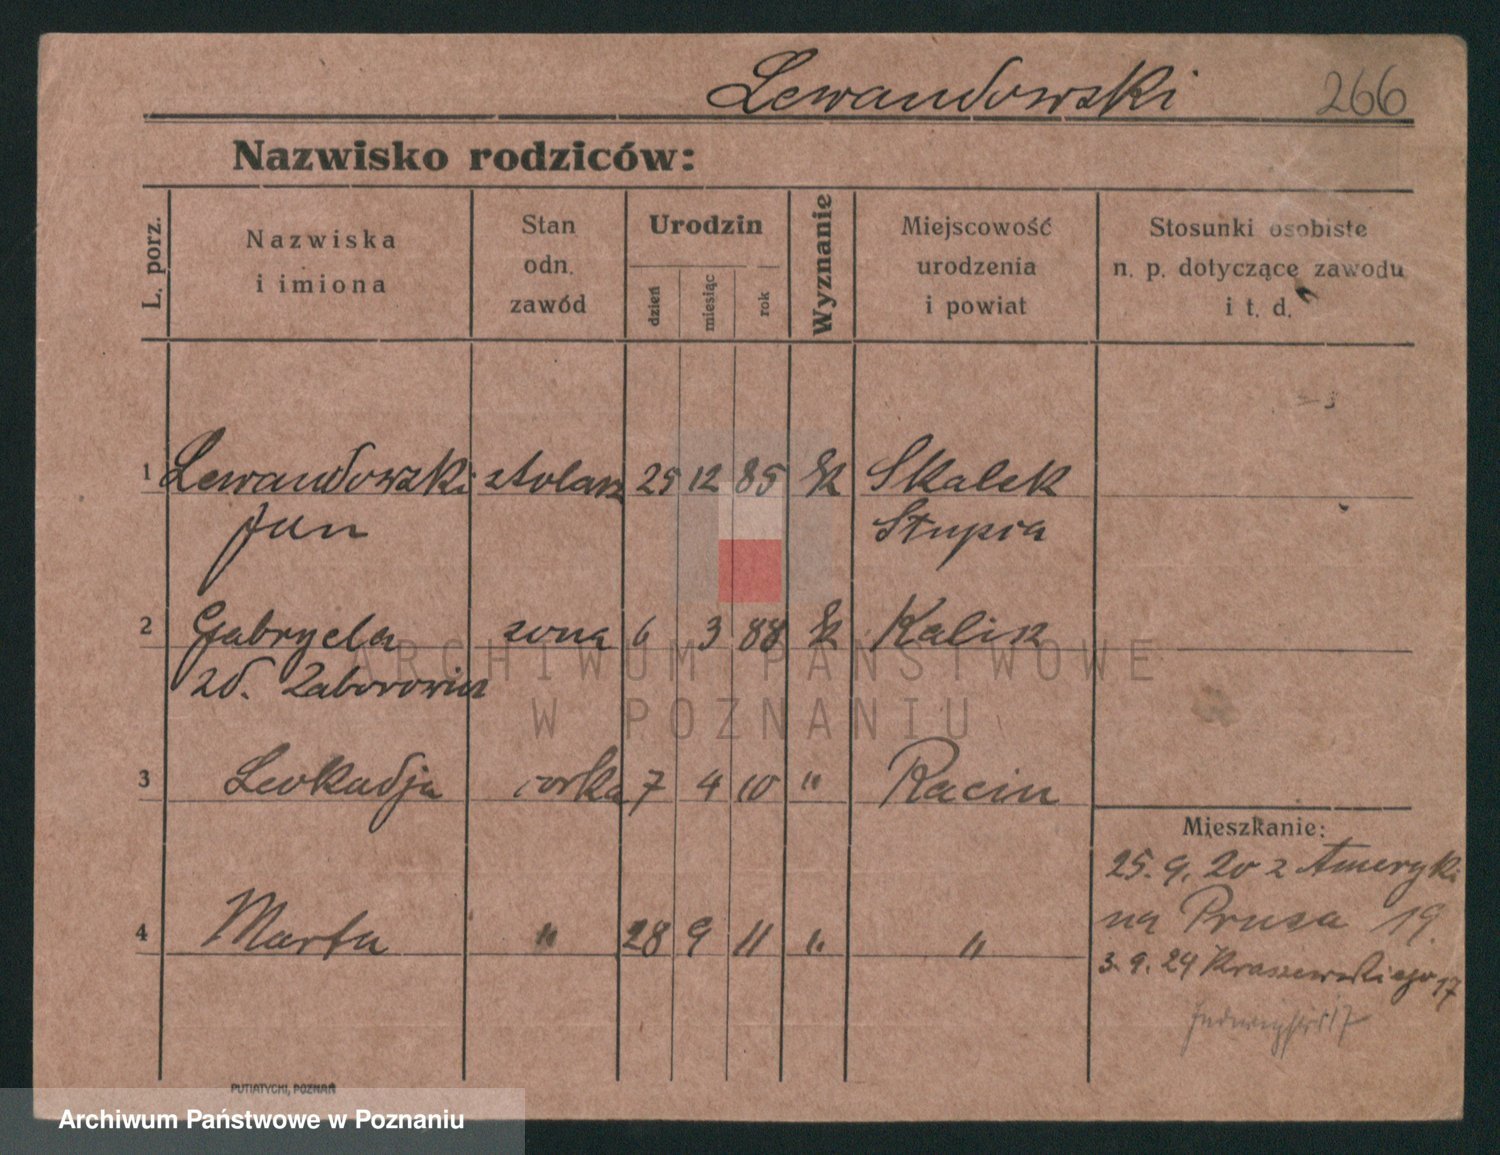 Lewandowski 266
Nazwisko rodziców:
L. porz.
Nazwiska
i imiona
Stan
odn.
zawód
Urodzin
dzień
miesiąc
rok
Wyznanie
Miejscowość
urodzenia
i powiat
Stosunki osobiste
n. p. dotyczące zawodu
i t. d.
1 Lewandowski stolarz 25 12 85 Rk Skalek
Jan Stupca
2 Gabryela zona 6 3 88 Rk Kalisz
zd. Zaborowicz
3 Leokadja corka 7 4 10 " Racin
4 Marta " 28 9 11 " "
Mieszkanie:
25. 9. 20 z Ameryki
na Prusa 19.
3. 9. 24 Kraszewskiego 17
PUTIATYCKI, POZNAŃ
ARCHIWUM PAŃSTWOWE
W POZNANIU
Archiwum Państwowe w Poznaniu